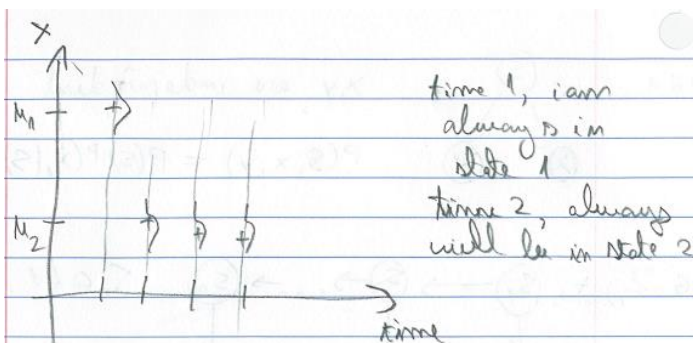 X
μ1
μ2
time
time 1, i am
always in
state 1
time 2, always
will be in state 2